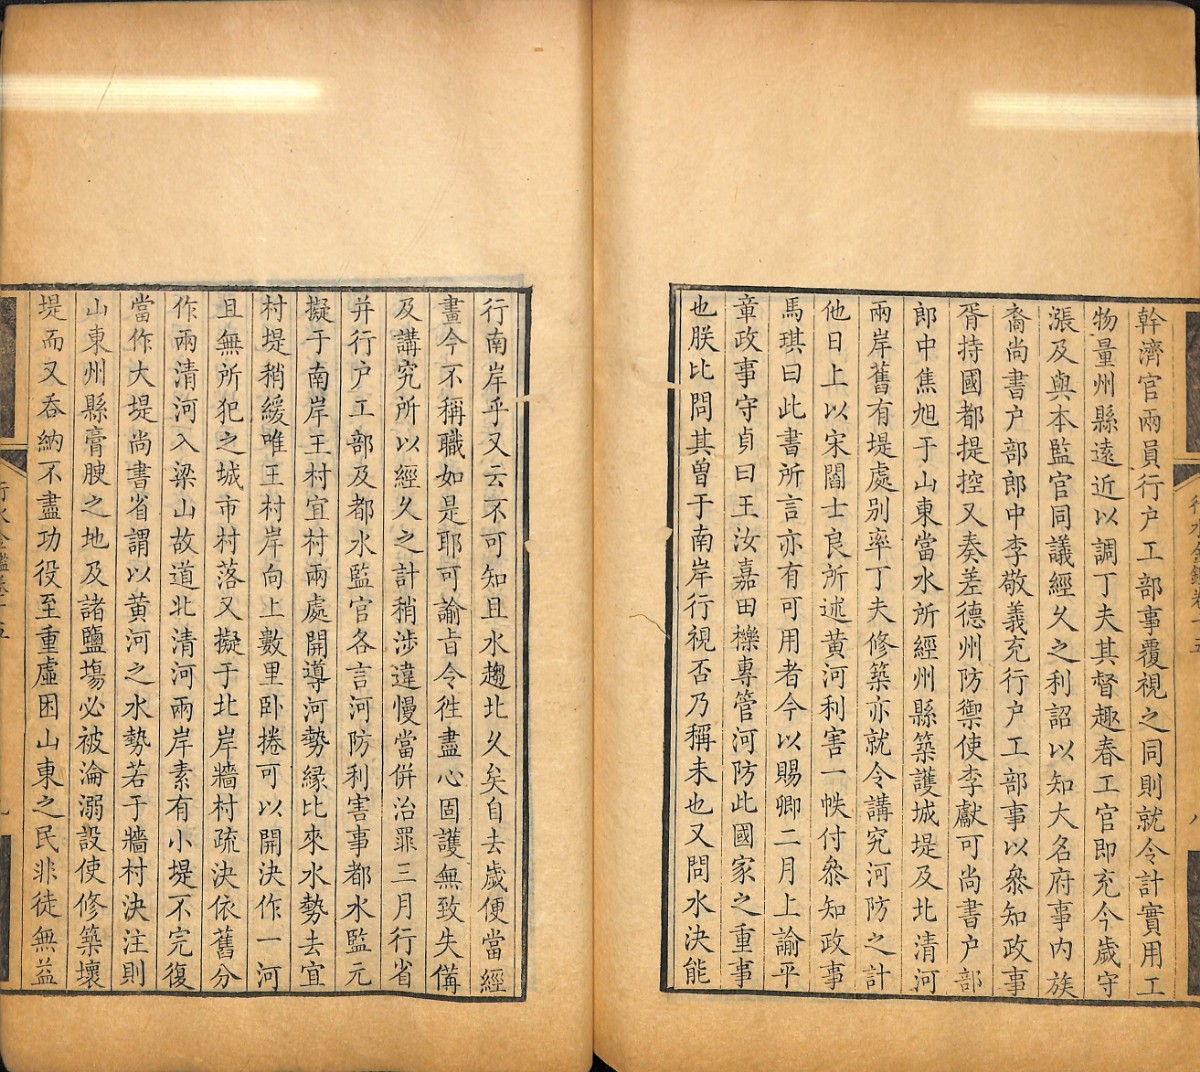 幹濟官兩員行户工部事覆視之同則就令計實用工
物量州縣遠近以調丁夫其督趣春工官即充今歲守
漲及與本監官同議經久之利詔以知大名府事内族
裔尚書户部郎中李敬義充行户工部事以叅知政事
胥持國都提控又奏差德州防禦使李獻可尚書户部
郎中焦旭于山東當水所經州縣築護城堤及北清河
兩岸舊有堤處别率丁夫修築亦就令講究河防之計
他日上以宋閻士良所述黄河利害一帙付叅知政事
馬琪曰此書所言亦有可用者今以賜卿二月上諭平
章政事守貞曰王汝嘉田櫟專管河防此國家之重事
也朕比問其曽于南岸行視否乃稱未也又問水決能
行南岸乎又云不可知且水趨北久矣自去歲便當經
畫今不稱職如是耶可諭旨令徃盡心固護無致失備
及講究所以經久之計稍涉違慢當併治罪三月行省
并行户工部及都水監官各言河防利害事都水監元
擬于南岸王村宜村兩處開導河勢縁比來水勢去宜
村堤稍緩唯王村岸向上數里卧捲可以開決作一河
且無所犯之城市村落又擬于北岸牆村疏決依舊分
作兩清河入梁山故道北清河兩岸素有小堤不完復
當作大堤尚書省謂以黄河之水勢若于牆村決注則
山東州縣膏腴之地及諸鹽塲必被淪溺設使修築壞
堤而又吞納不盡功役至重虚困山東之民非徒無益